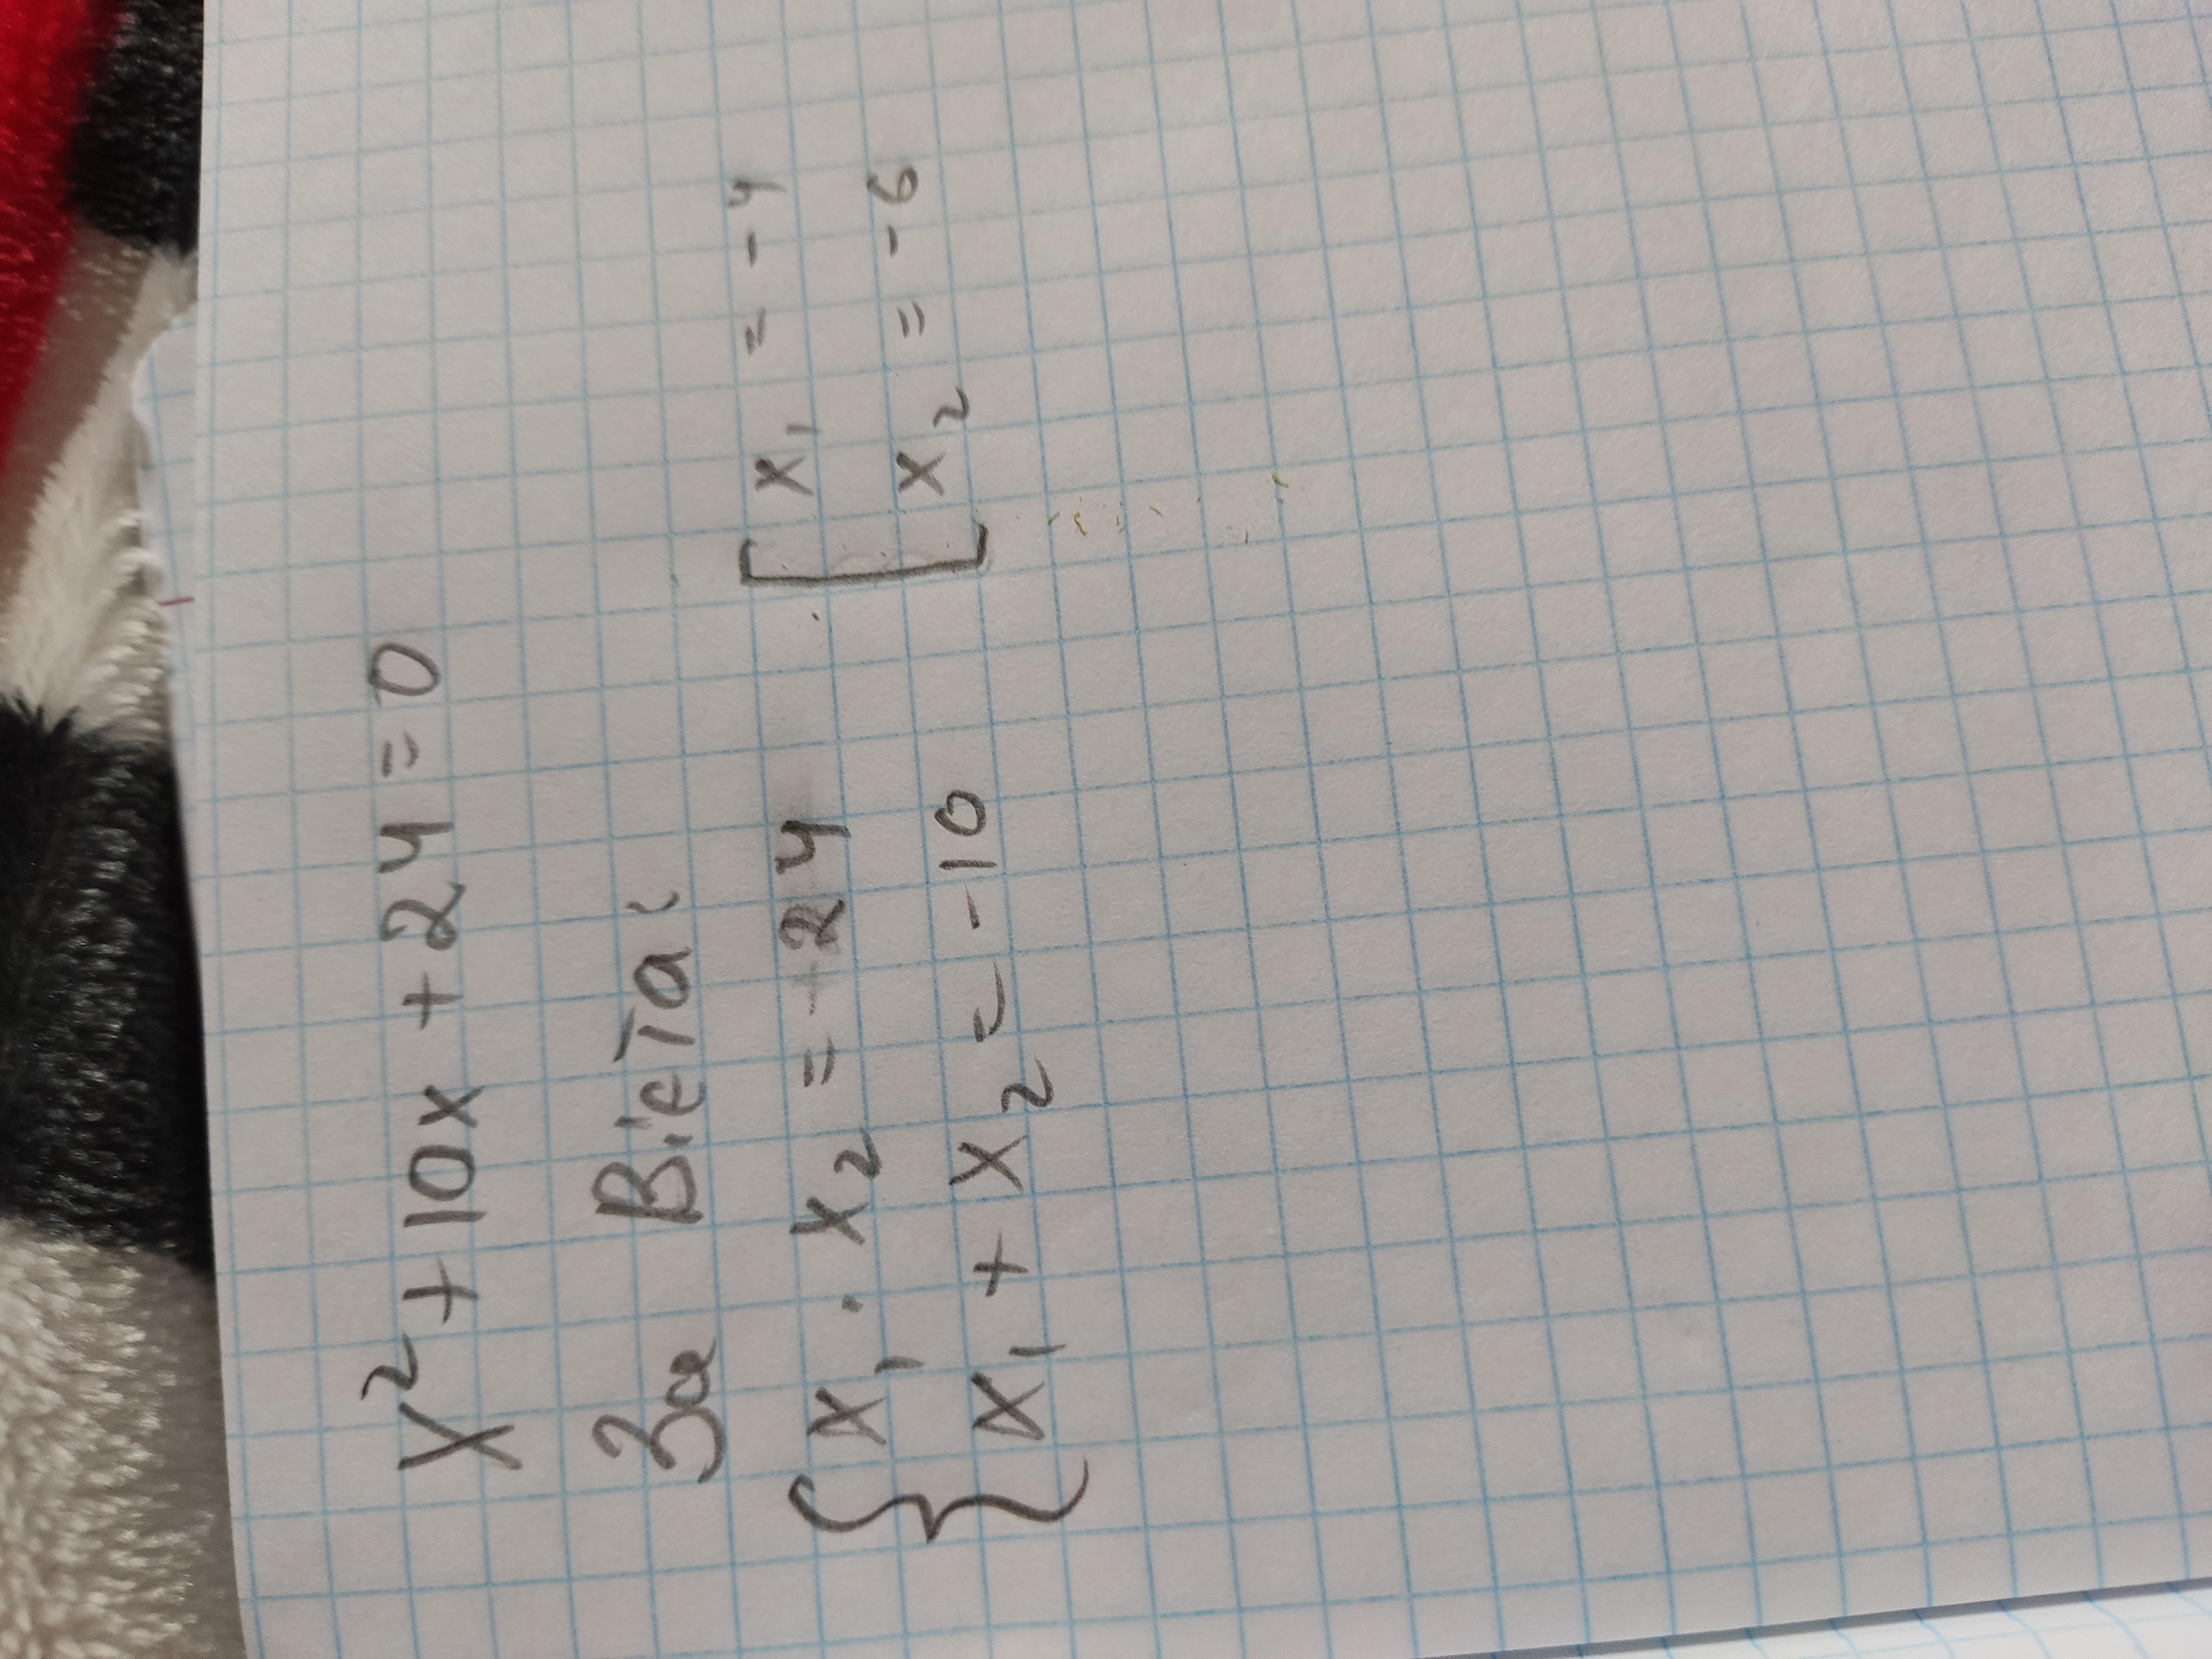 x² + 10x + 24 = 0
За Вієта:
{ x₁ · x₂ = 24 [ x₁ = -4
x₁ + x₂ = -10 x₂ = -6